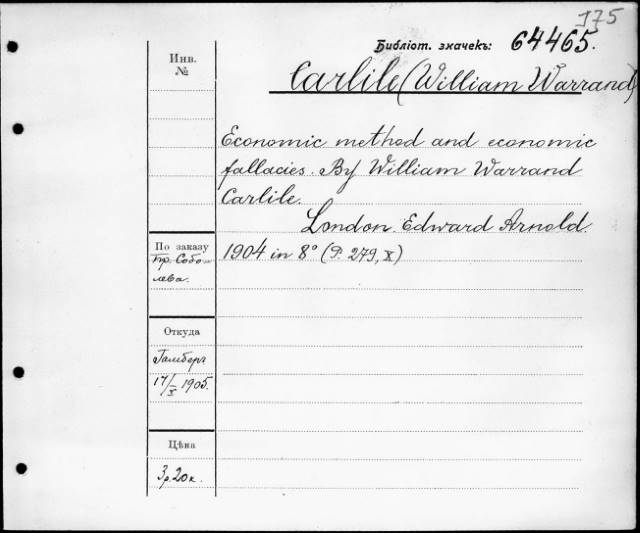 175
Библіот. значекъ: 64465.
Инв.
№
Carlile (William Warrand)
Economic method and economic
fallacies. By William Warrand
Carlile.
London. Edward Arnold.
1904 in 8° (P. 279, X)
По заказу
Пр. Собо-
лева.
Откуда
Гамберг
17/X 1905.
Цѣна
3р. 20к.